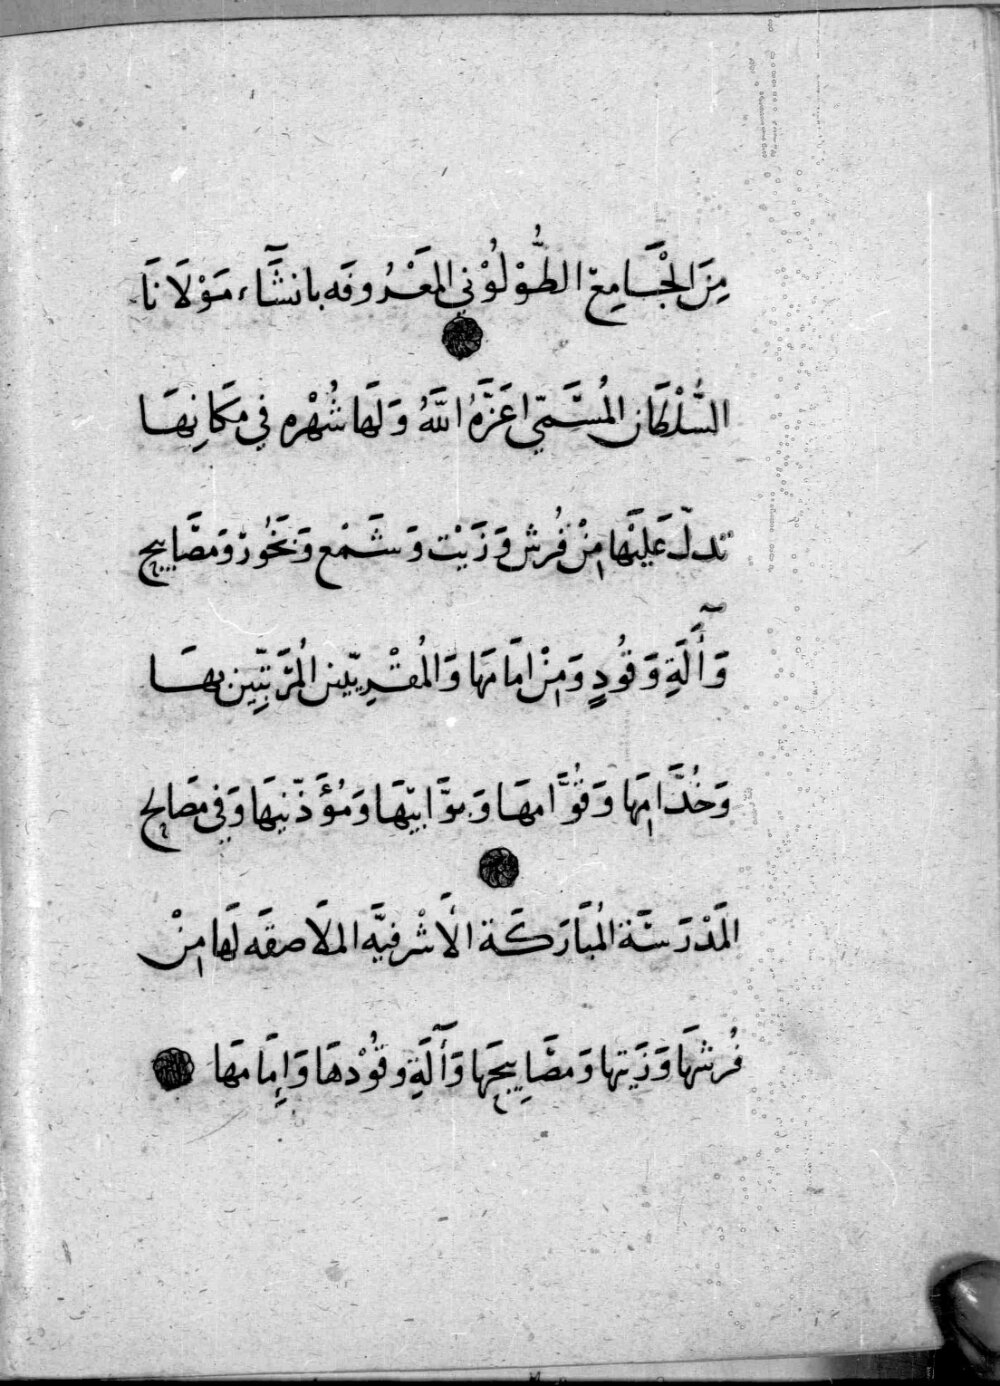 مِنَ الْجَامِعْ الطُّوْلُوْنِي المَعْرُوفَه بانشَآء مَوْلَانَا
السُّلْطَان المُسَمَّي اعَزَّهُ اللَّهُ وَلَهَا شُهْره في مَكَانِهَا
تدلّ عَلَيْهَا مِنْ فُرش وَزَيْت وَشَمْع وَبَخُوْر وَمصَابيح
وَآلَةِ وَقُودٍ وَمِنْ امَامهَا وَالمُقْرِيّين المُرَتَّبِيْن بهَا
وَخُدَّامِهَا وَقُوَّامهَا وَبوَّابيّهَا وَمُؤَذّنيهَا وَفي مصَالِح
المَدْرَسَة المُبَارَكَة الْأَشْرفيَّه الملَاصقَه لَهَا مِنْ
فُرشهَا وَزَيتها وَمصَابِيحِهَا وَآلَةِ وقُوْدهَا وَإمَامهَا